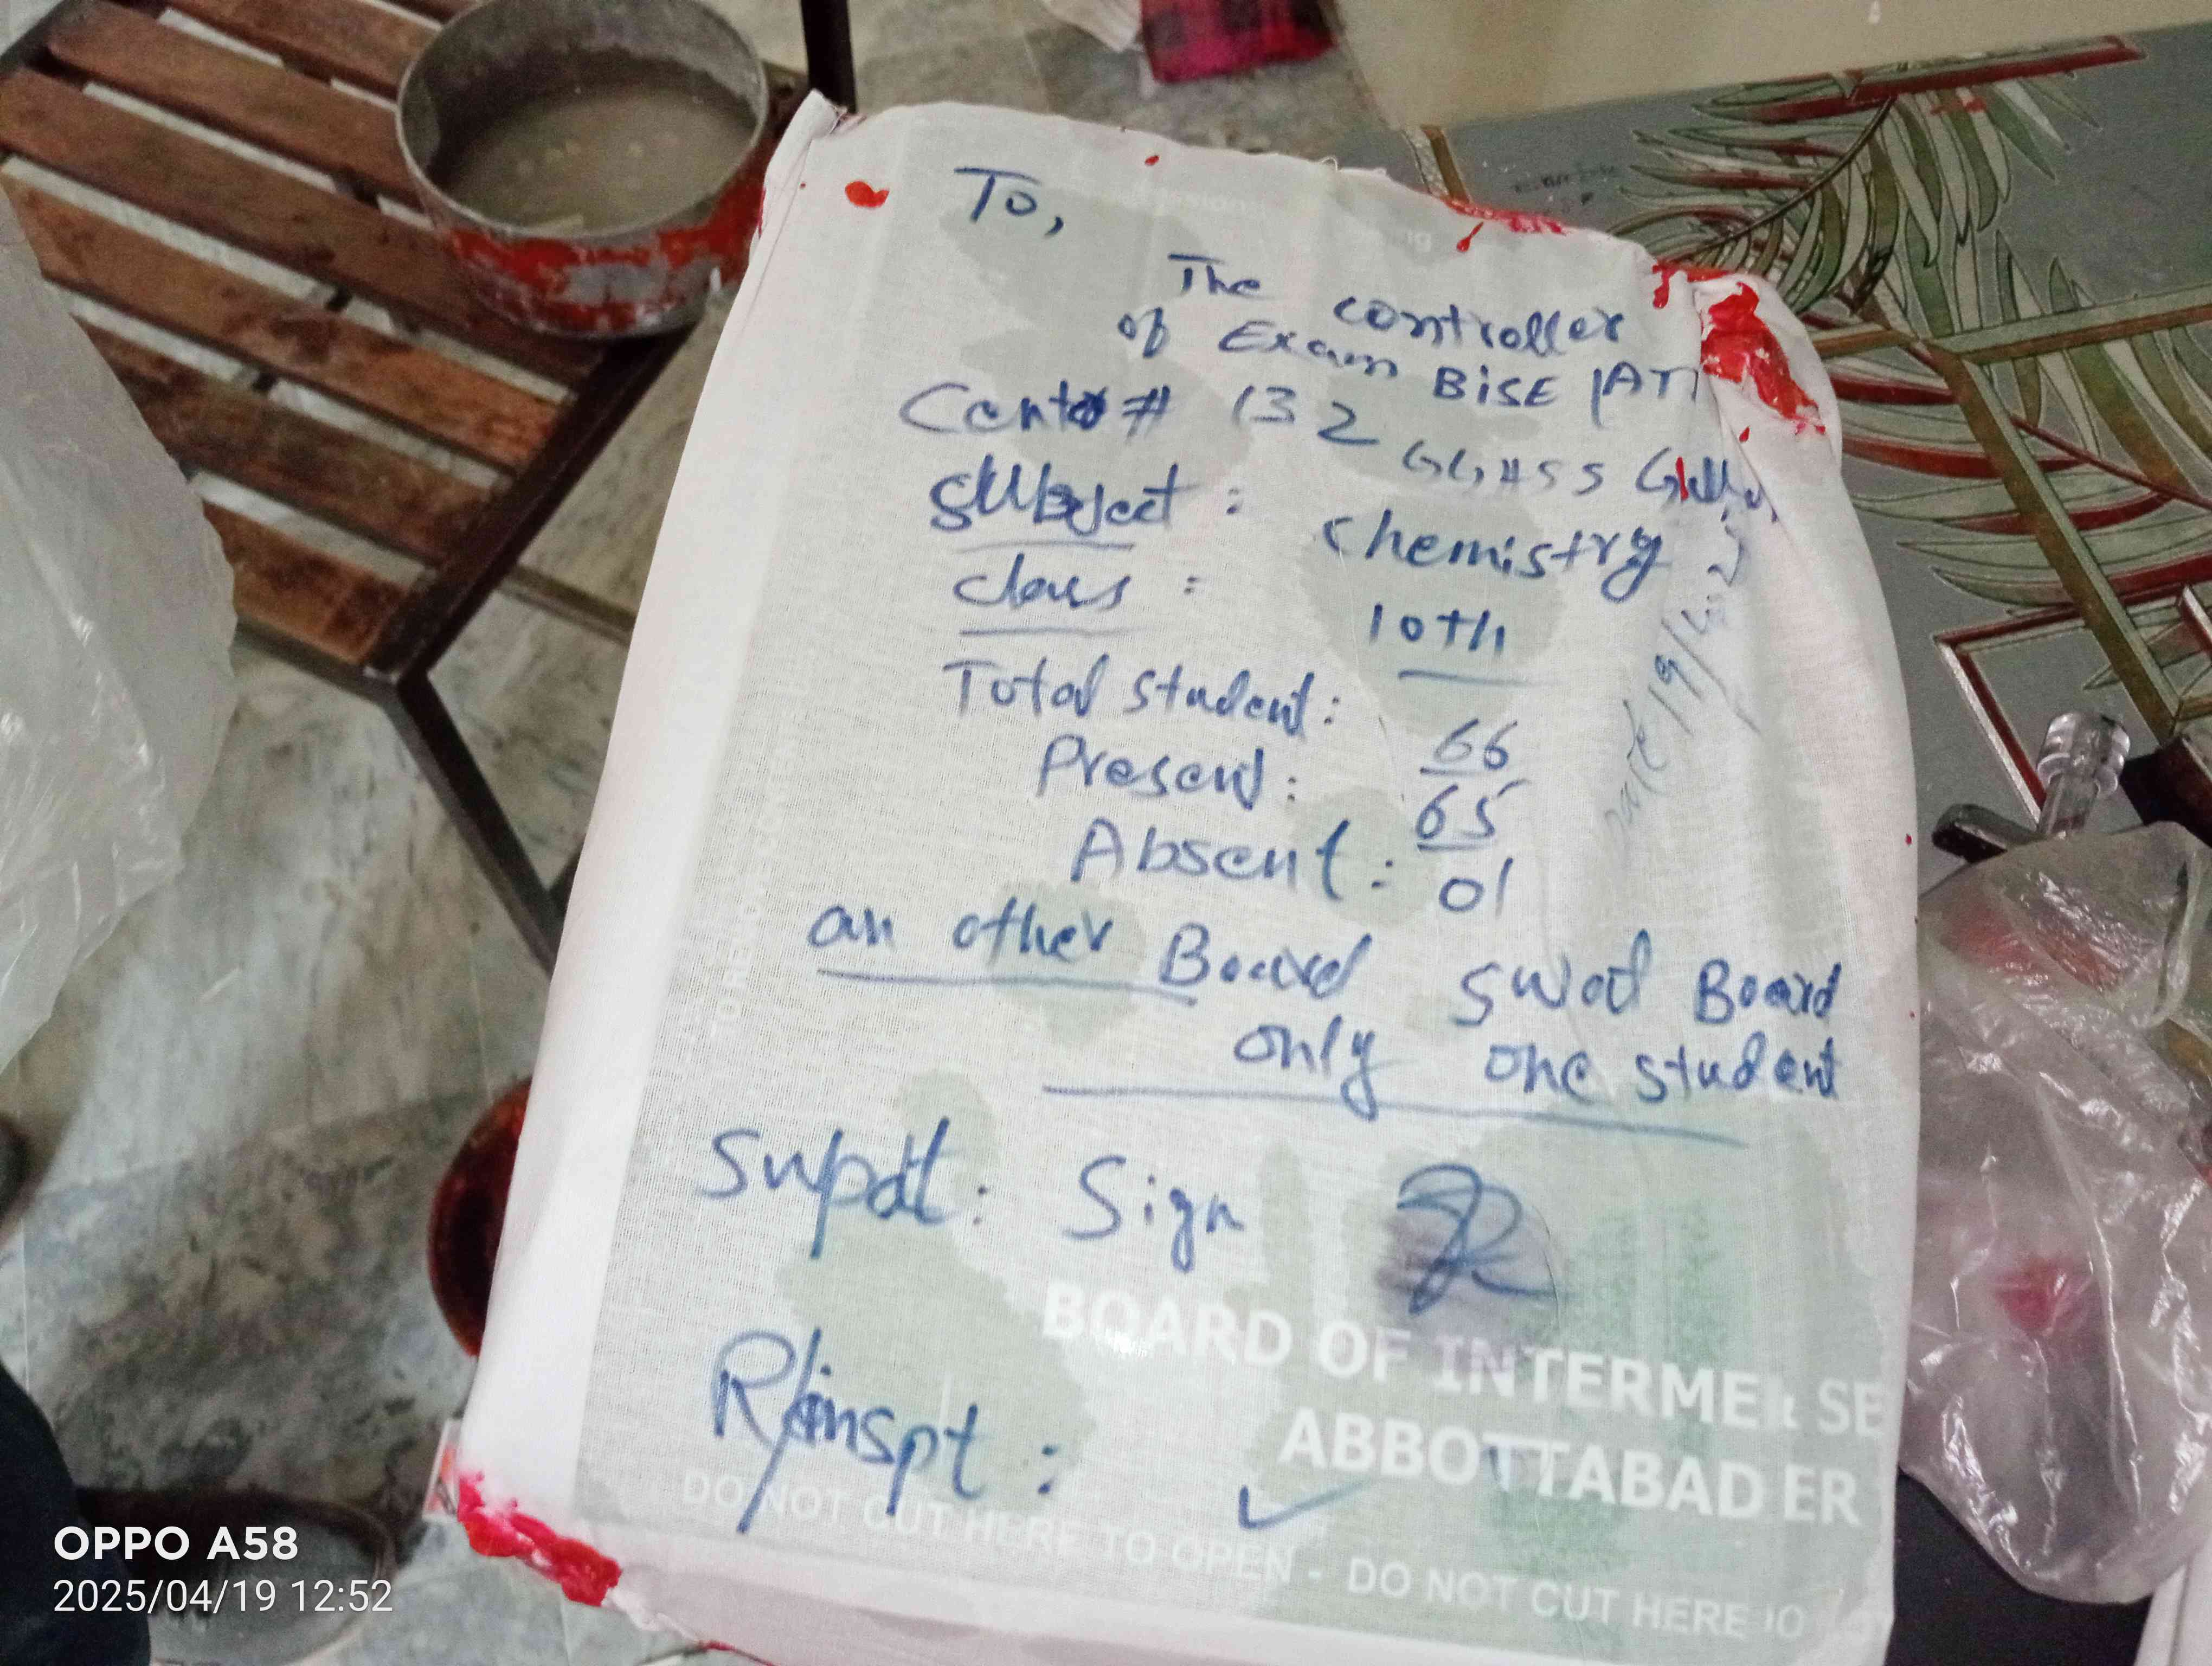 To,
The controller
of Exam BISE /ATD
Center # 132 GGHSS
Subject : chemistry
class : 10th
Date 19/4/25
Total student : 66
Present : 65
Absent : 01
an other Board swat Board
only one student
Supdt : Sign
R/inspt :
BOARD OF INTERME & SE
ABBOTTABAD ER
DO NOT CUT HERE TO OPEN - DO NOT CUT HERE TO
OPPO A58
2025/04/19 12:52